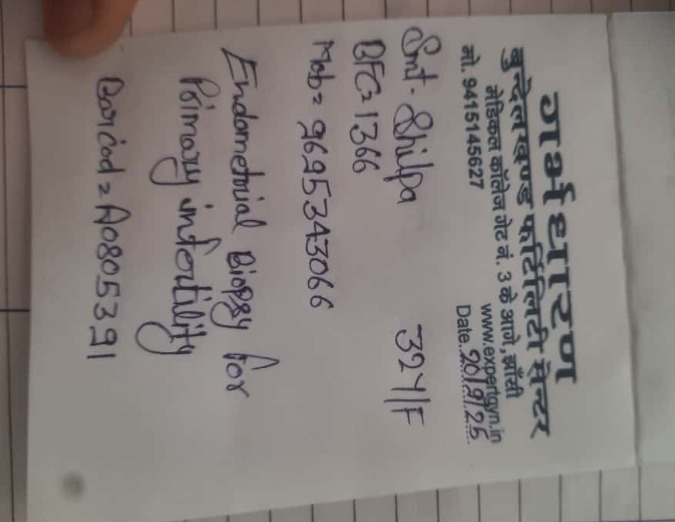 गर्भधारण
बुन्देलखण्ड फर्टिलिटी सेन्टर
मेडिकल कॉलेज गेट नं. 3 के आगे, झाँसी
मो. 9415145627 www.expertgyn.in
Date..20/9/25
Smt. Shilpa 32Y/F
BFC=1366
Mob= 9695343066
Endometrial Biopsy for
Primary infertility
Barcod= A0805391